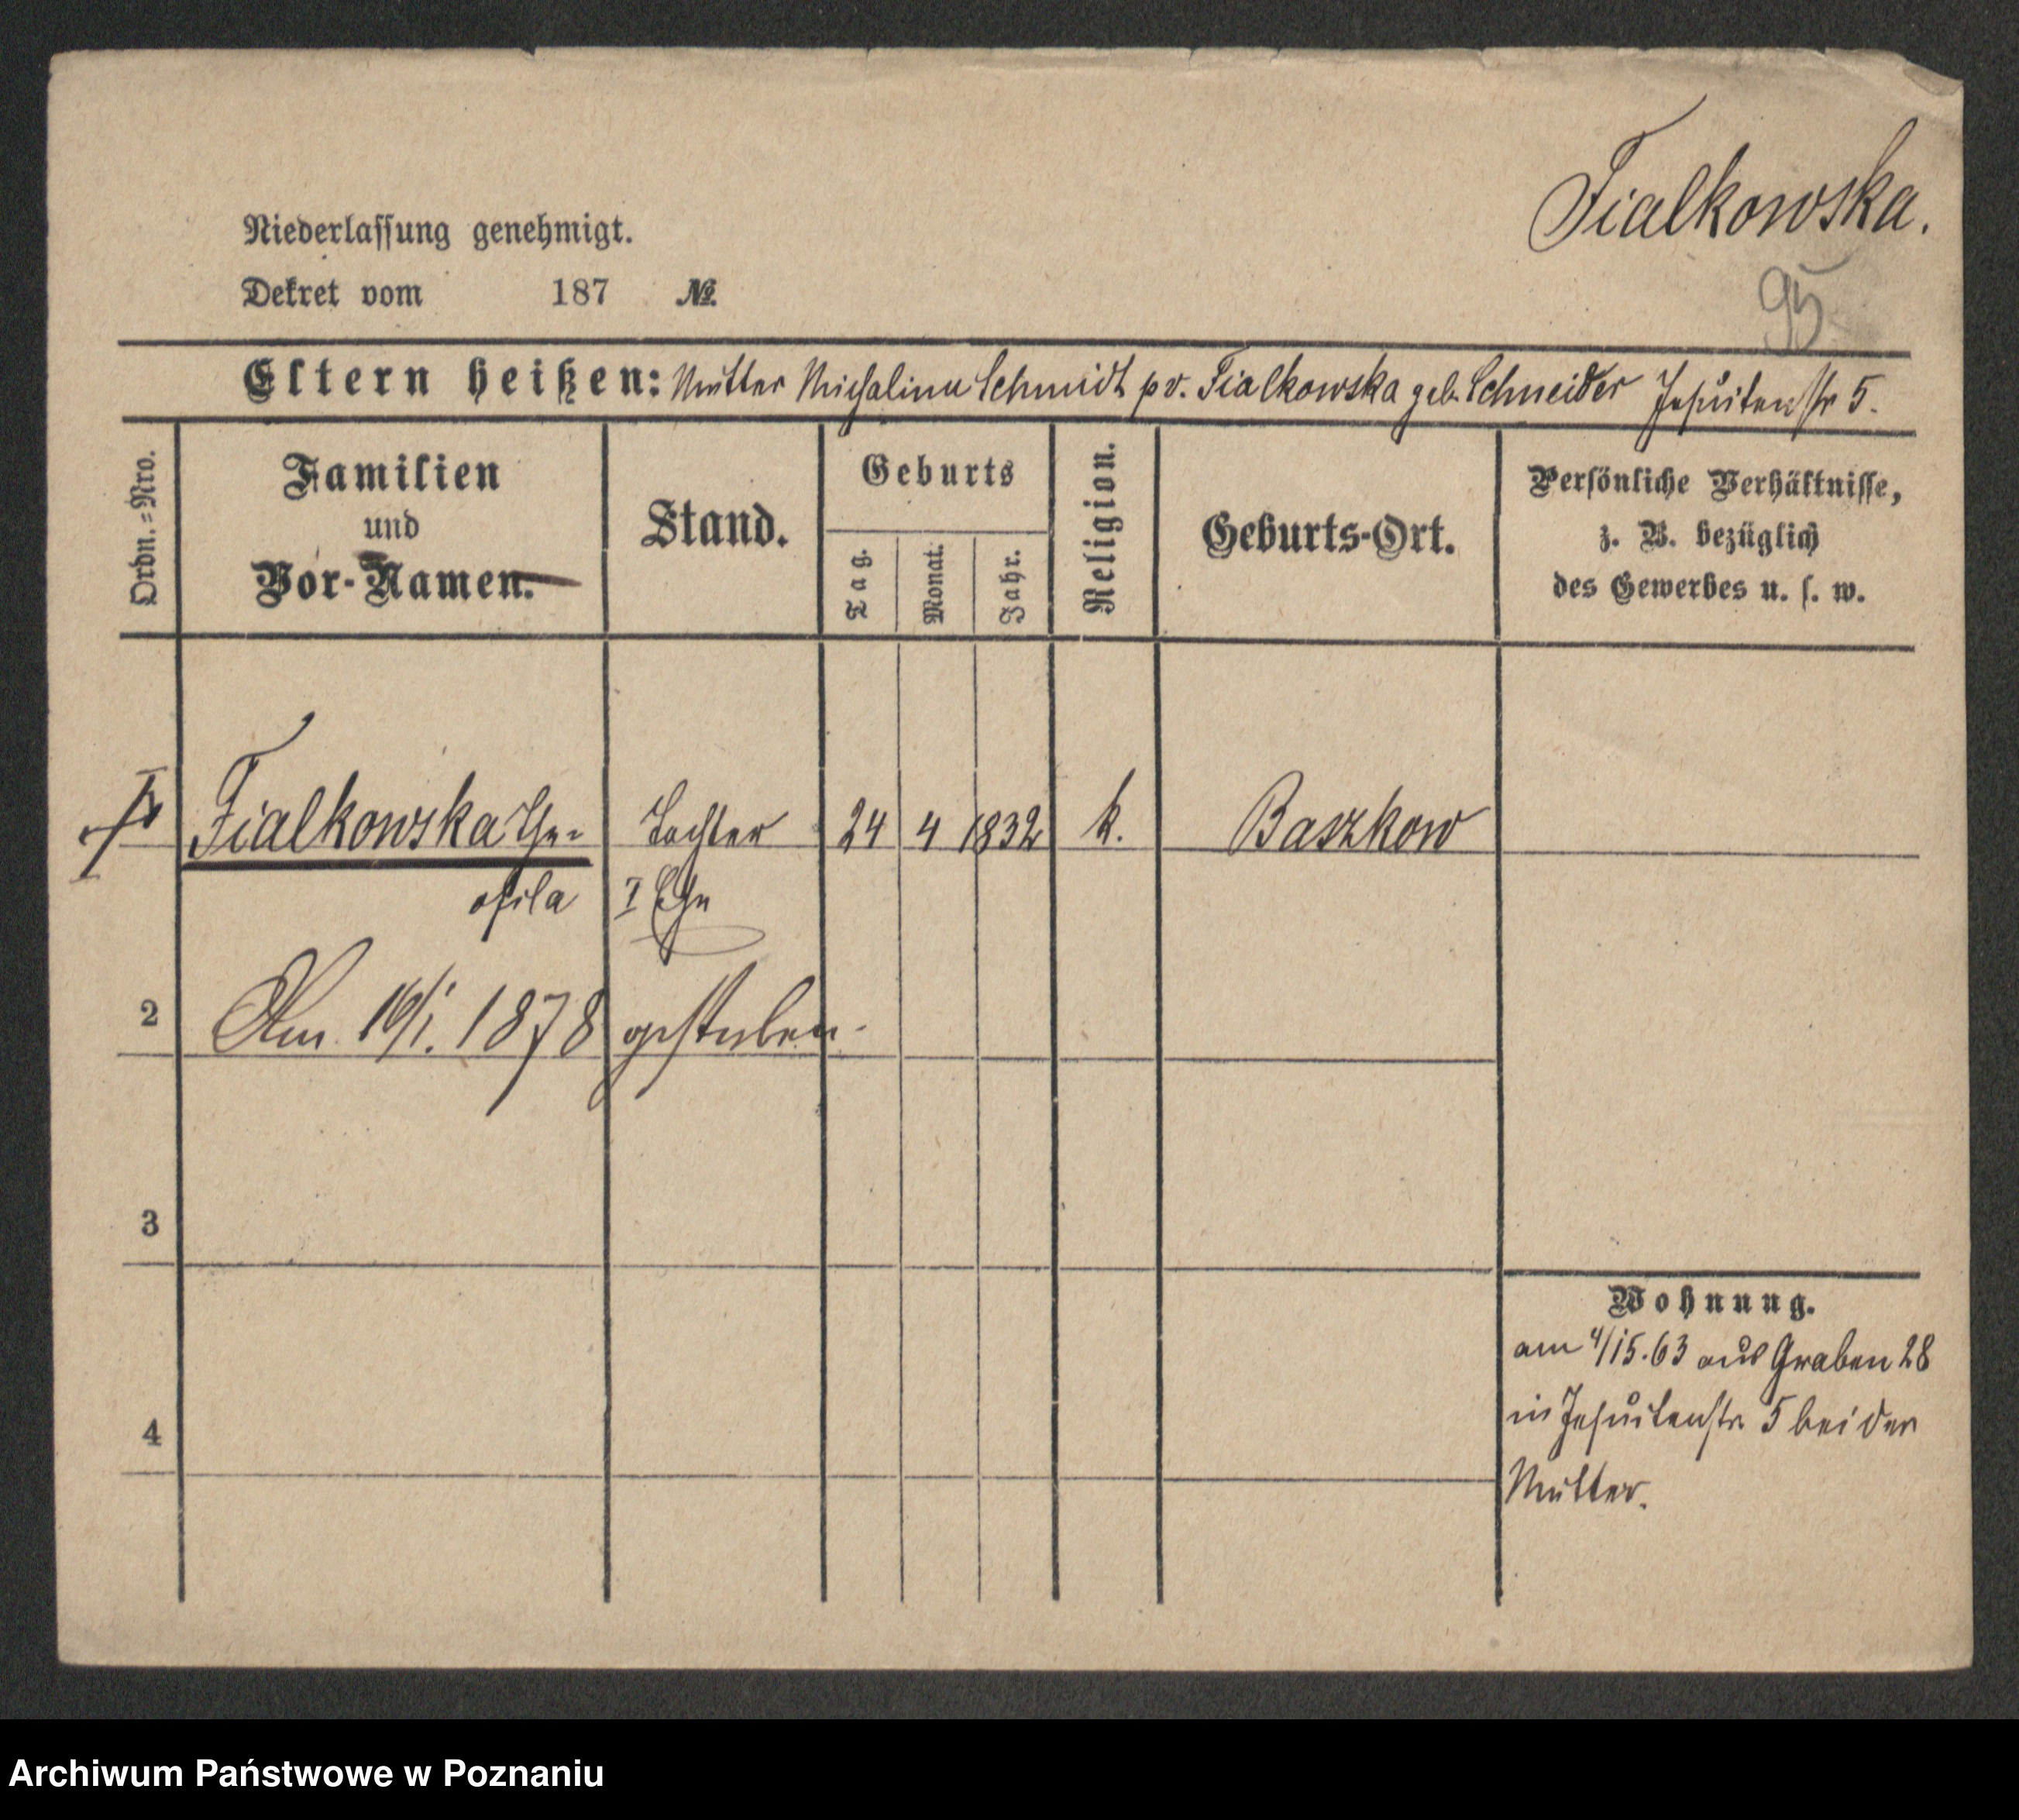 Fialkowska.
95
Niederlassung genehmigt.
Dekret vom 187 №
Eltern heißen: Mutter Michalina Schmidt pv. Fialkowska geb. Schneider Jesuitenstr 5.
Ordn.=Nro.
Familien und Vor-Namen.
Stand.
Geburts
Tag.
Monat.
Jahr.
Religion.
Geburts-Ort.
Persönliche Verhältnisse,
z. B. bezüglich
des Gewerbes u. s. w.
Fialkowska The= Tochter 24 4 1832 k. Baszkow
ofila I Ehe
2 Am 16/1. 1878 gestorben.
3
4
Wohnung.
am 4/15.63 aus Graben 28
in Jesuitenstr. 5 bei der
Mutter.
Archiwum Państwowe w Poznaniu